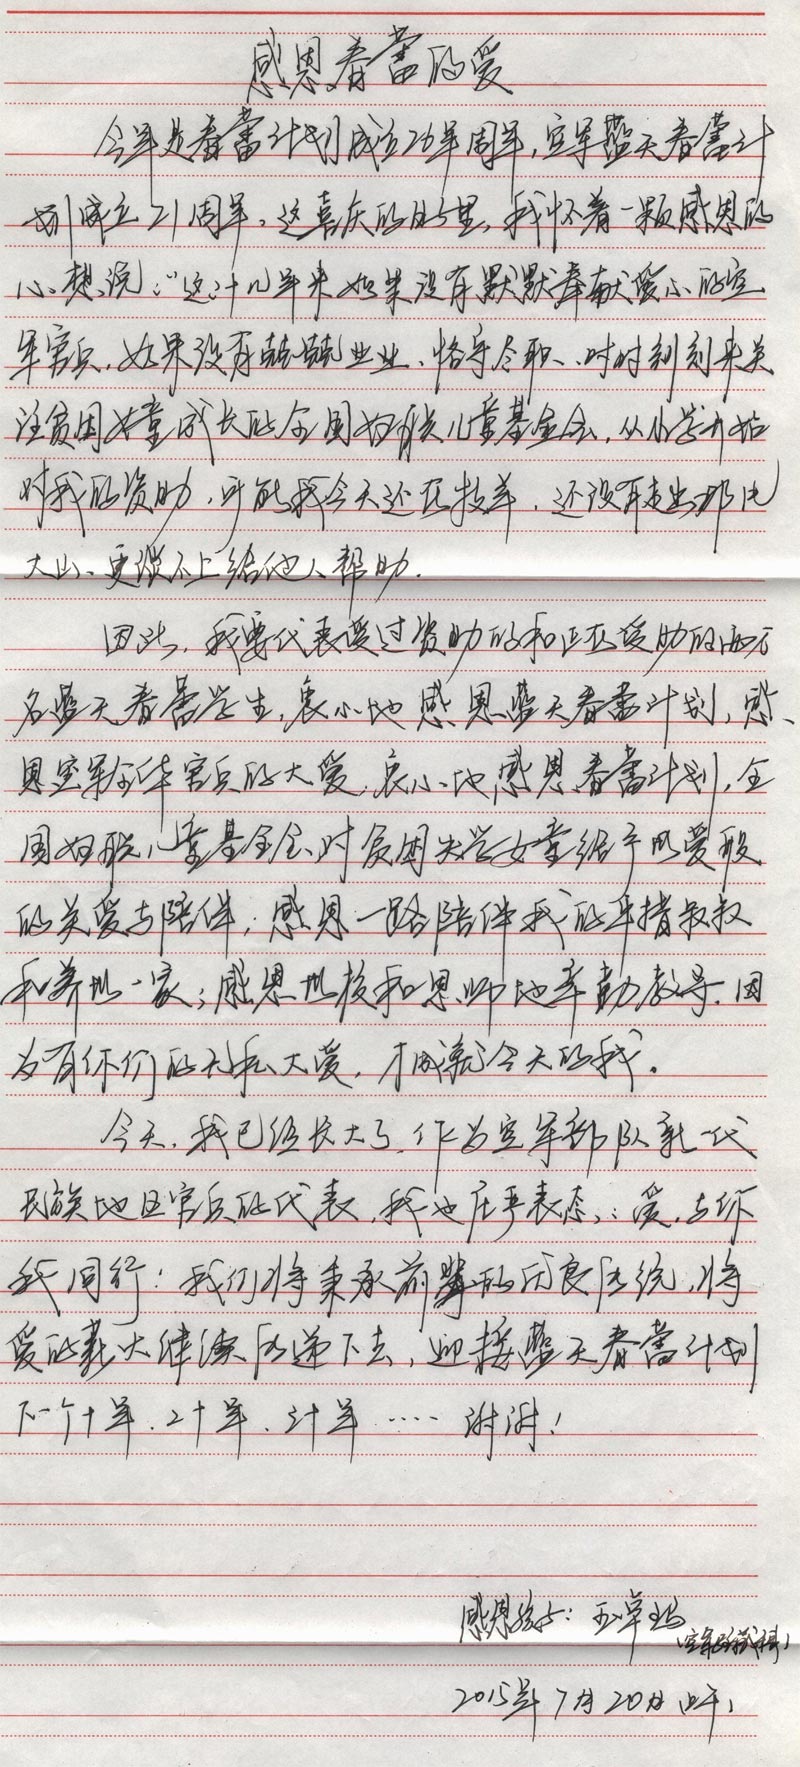 感恩春蕾的爱
今年是春蕾计划成立26年周年,空军蓝天春蕾计
划成立21周年。这喜庆的日子里,我怀着一颗感恩的
心想说:“这十几年来如果没有默默奉献爱心的空
军官兵,如果没有兢兢业业、恪守尽职、时时刻刻来关
注贫困女童成长的全国妇联儿童基金会,从小学开始
对我的资助,可能我今天还在牧羊,还没有走出那片
大山、更谈不上给他人帮助.
因此,我要代表受过资助的和正在受助的两万
名蓝天春蕾学生,衷心地感恩蓝天春蕾计划,感
恩空军全体官兵的大爱;衷心地感恩春蕾计划,全
国妇联儿童基金会、对贫困失学女童给予的爱般
的关爱与陪伴;感恩一路陪伴我的叔叔
和一家;感恩母校和恩师地辛勤教导.因
为有你们的无私大爱,才成就今天的我。
今天,我已经长大了,作为空军部队新一代
民族地区官兵的代表,我也庄严表态:爱,与你
我同行!我们将秉承前辈的优良传统,将
爱的薪火继续传递下去,迎接蓝天春蕾计划
下一个十年、二十年、卅年……谢谢!
感恩孩子:王卓玛
2015年7月20日